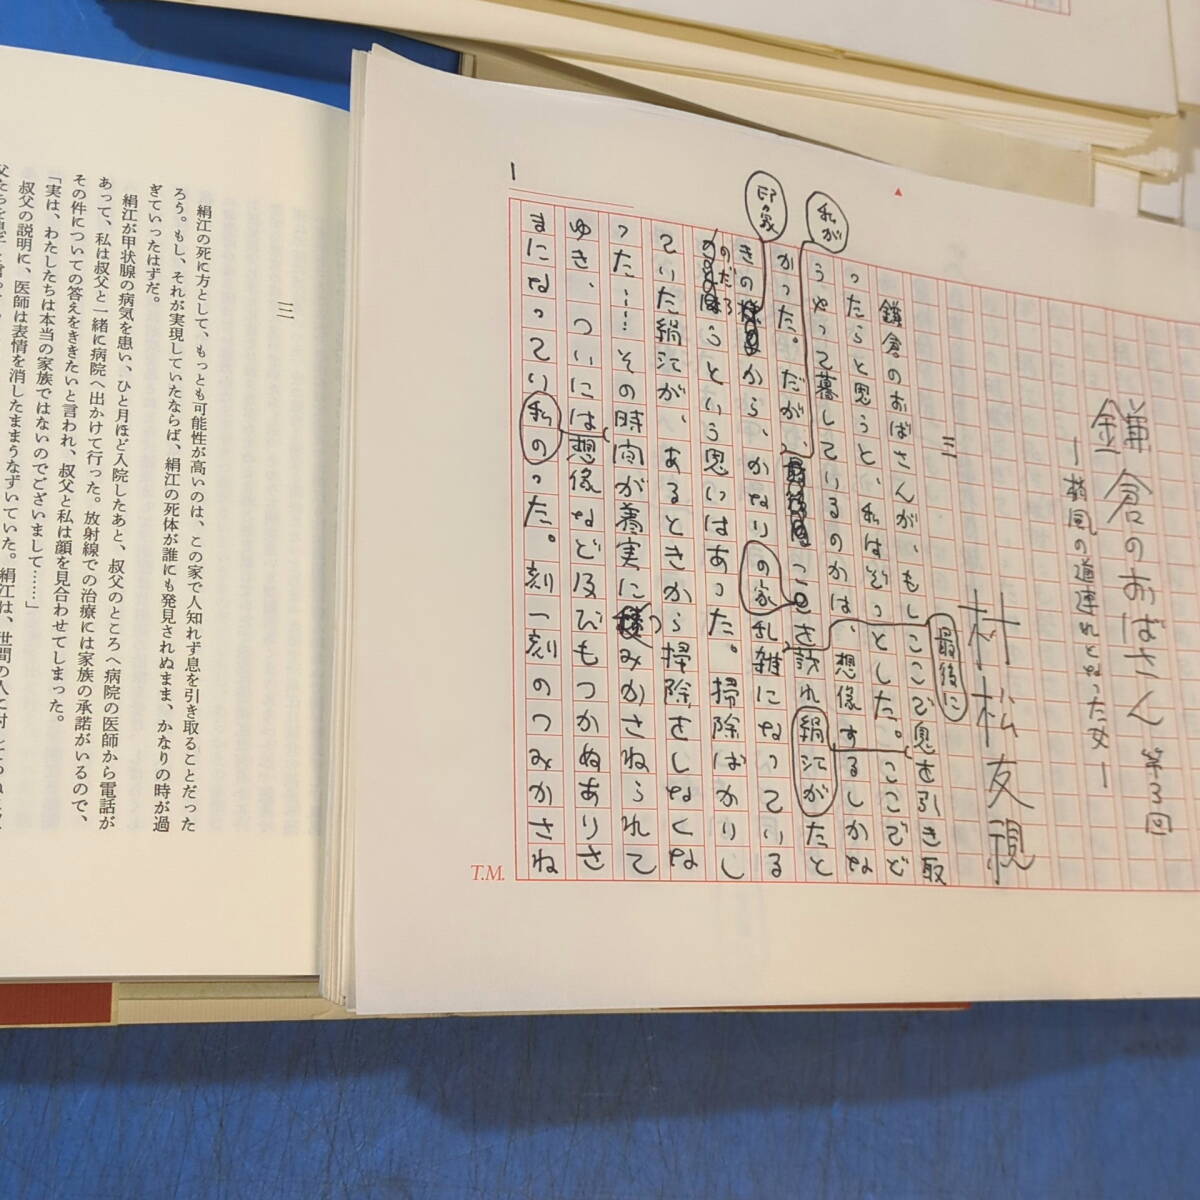 鎌倉のおばさん 第3回
村松友視
三
鎌倉のおばさんが、もしここで息を引き取
ったらと思うと、私はぞっとした。ここでど
うやって暮しているのかは、想像するしかな
かった。だが、
きの
から、かなり
乱雑になっている
のだろうという思いはあった。掃除ばかりし
ていた絹江が、あるときから掃除をしなくな
った……その時間が着実に
みかさねられて
ゆき、ついには想像など及びもつかぬありさ
まになってい
った。刻一刻のつみかさね
私が
最後に
の家
絹江が
私の
1
T.M.
三
絹江の死に方として、もっとも可能性が高いのは、この家で人知れず息を引き取ることだった
ろう。もし、それが実現していたならば、絹江の死体が誰にも発見されぬまま、かなりの時が過
ぎていったはずだ。
絹江が甲状腺の病気を患い、ひと月ほど入院したあと、叔父のところへ病院の医師から電話が
あって、私は叔父と一緒に病院へ出かけて行った。放射線での治療には家族の承諾がいるので、
その件についての答えをききたいと言われ、叔父と私は顔を見合わせてしまった。
「実は、わたしたちは本当の家族ではないのでございまして……」
叔父の説明に、医師は表情を消したままうなずいていた。絹江は、世間の人に対